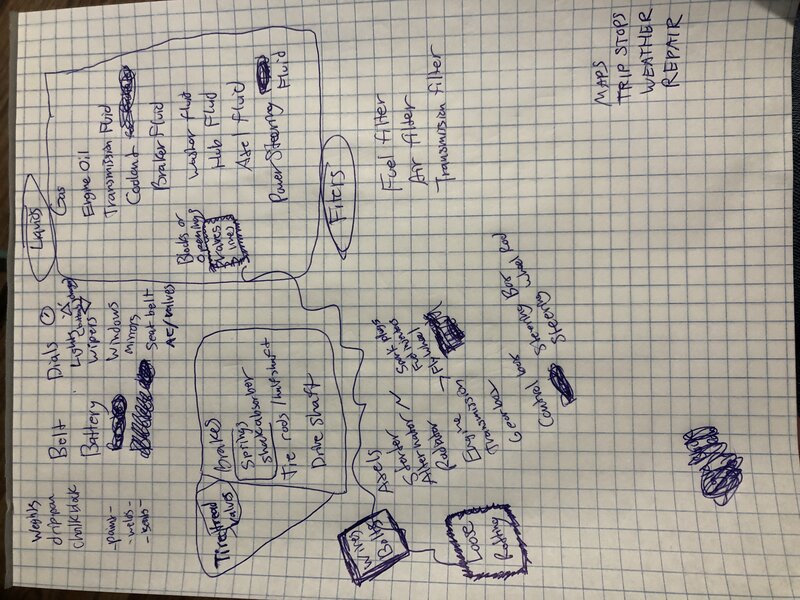 Weights
drippan
chalkbak
-pains-
-welds-
-seats-
Belt
Battery
Dials
Lights
Wipers
Windows
mirrors
Seat belt
AC/valves
Liquids
Gas
Engine Oil
Transmission Fluid
Coolant
Braker Fluid
washer fluid
Hub Fluid
Axel fluid
Power Steering Fluid
Blocks or
openings
Brakes
lines
Tires/tread
valves
Brakes
Springs
shockabsorber
Tie rods/halfshaft
Drive shaft
Filters
Fuel filter
Air filter
Transmission filter
Wires
Bolts
Loose
Rotting
Axels
Starter
Alternator
Radiator
Engine
Transmission
Gearbox
Spark plugs
Flywheel
Control box
Steering Box
Steering Wheel Rod
MAPS
TRIP STOPS
WEATHER
REPAIR